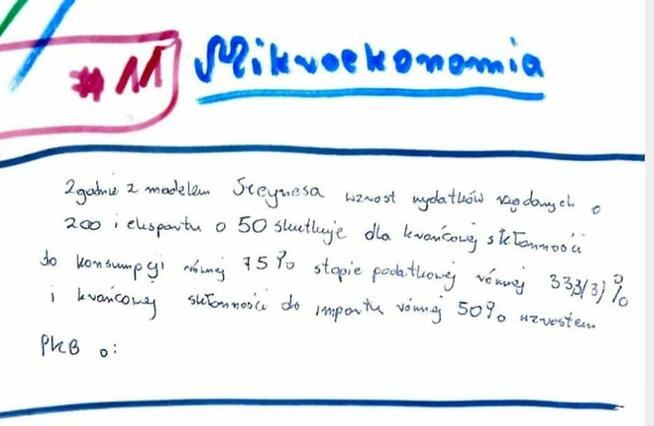 #11 Mikroekonomia
Zgodnie z modelem Keynesa wzrost wydatków rządowych o
200 i eksportu o 50 skutkuje dla krańcowej skłonności
do konsumpcji równej 75% stopie podatkowej równej 33,3(3)%
i krańcowej skłonności do importu równej 50% wzrostem
PKB o: